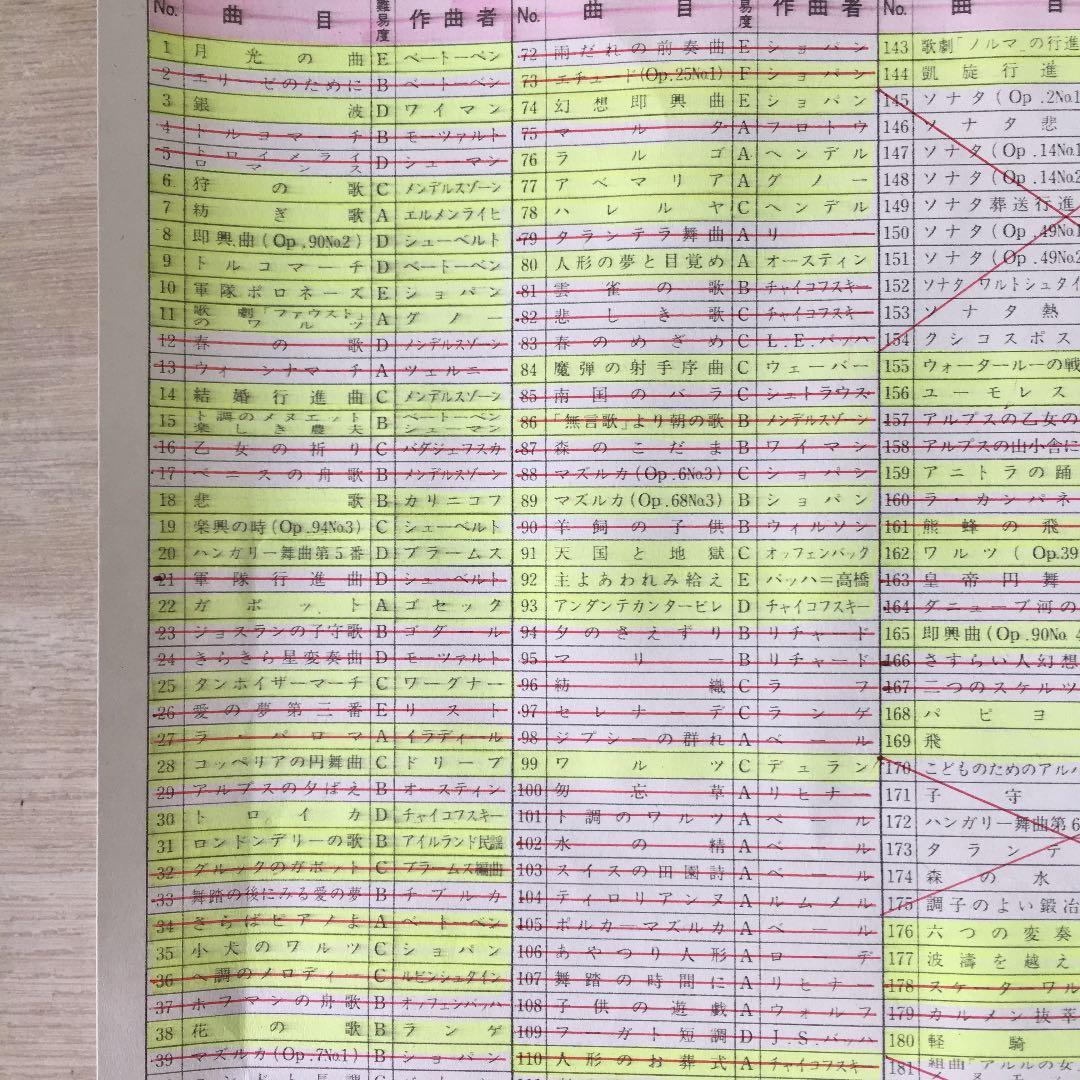 No. 曲目 難易度 作曲者
1 月光の曲 E ベートーベン
2 エリーゼのために B ベートーベン
3 銀波 D ワイマン
4 トルコマーチ B モーツァルト
5 トロイメライ ロマンス D シューマン
6 狩の歌 C メンデルスゾーン
7 紡ぎ歌 A エルメンライヒ
8 即興曲(Op.90No.2) D シューベルト
9 トルコマーチ D ベートーベン
10 軍隊ポロネーズ E ショパン
11 歌劇「ファウスト」のワルツ A グノー
12 春の歌 D メンデルスゾーン
13 ウィーンナマーチ A ツェルニー
14 結婚行進曲 C メンデルスゾーン
15 ト調のメヌエット 楽しき農夫 B ベートーベン シューマン
16 乙女の祈り C バダジェフスカ
17 ベニスの舟歌 B メンデルスゾーン
18 悲歌 B カリニコフ
19 楽興の時(Op.94No.3) C シューベルト
20 ハンガリー舞曲第5番 D ブラームス
21 軍隊行進曲 D シューベルト
22 ガボット A ゴセック
23 ジョスランの子守歌 B ゴダール
24 きらきら星変奏曲 D モーツァルト
25 タンホイザーマーチ C ワーグナー
26 愛の夢第三番 E リスト
27 ラ・パロマ A イラディール
28 コッペリアの円舞曲 C ドリーブ
29 アルプスの夕ばえ B オースティン
30 トロイカ D チャイコフスキー
31 ロンドンデリーの歌 B アイルランド民謡
32 グルックのガボット C ブラームス編曲
33 舞踏の後にみる愛の夢 B チブルカ
34 さらばピアノよ A ベートーベン
35 小犬のワルツ C ショパン
36 ヘ調のメロディー C ルビンシュタイン
37 ホフマンの舟歌 B オッフェンバッハ
38 花の歌 B ランゲ
39 マズルカ(Op.7No.1) B ショパン
No. 曲目 易度 作曲者
72 雨だれの前奏曲 E ショパン
73 エチュード(Op.25No.1) F ショパン
74 幻想即興曲 E ショパン
75 マルタ A フロトウ
76 ラルゴ A ヘンデル
77 アベマリア A グノー
78 ハレルヤ C ヘンデル
79 タランテラ舞曲 A リー
80 人形の夢と目覚め A オースティン
81 雲雀の歌 B チャイコフスキー
82 悲しき歌 C チャイコフスキー
83 春のめざめ C L.E.バッハ
84 魔弾の射手序曲 C ウェーバー
85 南国のバラ C シュトラウス
86 「無言歌」より朝の歌 B メンデルスゾーン
87 森のこだま B ワイマン
88 マズルカ(Op.6No.3) C ショパン
89 マズルカ(Op.68No.3) B ショパン
90 羊飼の子供 B ウィルソン
91 天国と地獄 C オッフェンバック
92 主よあわれみ給え E バッハ=高橋
93 アンダンテカンタービレ D チャイコフスキー
94 夕のさえずり B リチャード
95 マリー B リチャード
96 紡織 C ラフ
97 セレナーデ C ランゲ
98 ジプシーの群れ A ベール
99 ワルツ C デュラン
100 勿忘草 A リヒナー
101 ト調のワルツ A ベール
102 水の精 A ベール
103 スイスの田園詩 A ベール
104 ティロリアンヌ A ルムメル
105 ポルカーマズルカ A ベール
106 あやつり人形 A ローデ
107 舞踏の時間に A リヒナー
108 子供の遊戯 A ウォルフ
109 フーガト短調 D J.S.バッハ
110 人形のお葬式 A チャイコフスキー
No. 曲目
143 歌劇「ノルマ」の行進
144 凱旋行進
145 ソナタ(Op.2No.1
146 ソナタ悲
147 ソナタ(Op.14No.1
148 ソナタ(Op.14No.2
149 ソナタ葬送行進
150 ソナタ(Op.49No.1
151 ソナタ(Op.49No.2
152 ソナタ ワルトシュタイ
153 ソナタ熱
154 クシコスポス
155 ウォータールーの戦
156 ユーモレス
157 アルプスの乙女の
158 アルプスの山小舎に
159 アニトラの踊
160 ラ・カンパネ
161 熊蜂の飛
162 ワルツ(Op.39
163 皇帝円舞
164 ダニューブ河の
165 即興曲(Op.90No.4
166 さすらい人幻想
167 二つのスケルツ
168 パピヨ
169 飛
170 こどものためのアルバ
171 子守
172 ハンガリー舞曲第6
173 タランテ
174 森の水
175 調子のよい鍛冶
176 六つの変奏
177 波濤を越え
178 スケーターワル
179 カルメン抜萃
180 軽騎
181 組曲「アルルの女